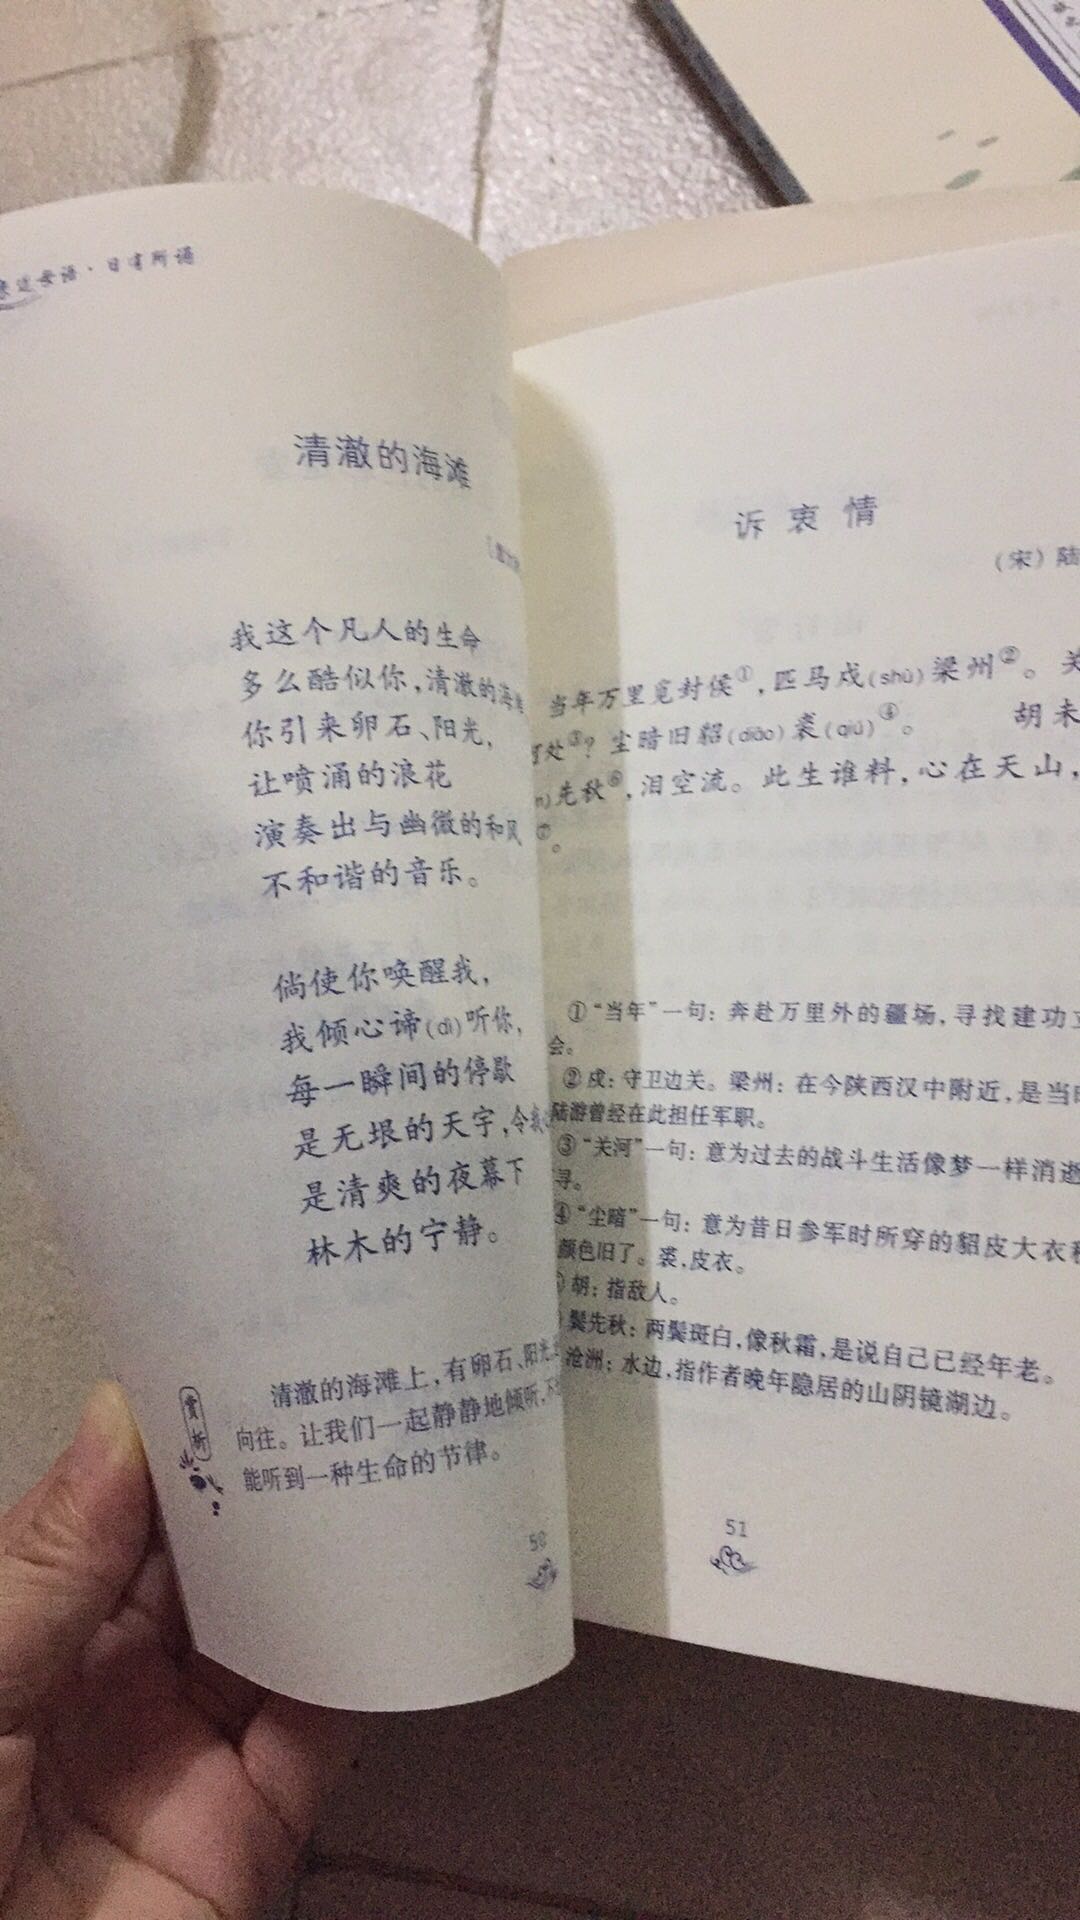 母语·日有所诵
清澈的海滩
我这个凡人的生命
多么酷似你，清澈的海
你引来卵石、阳光，
让喷涌的浪花
演奏出与幽微的和风
不和谐的音乐。
倘使你唤醒我，
我倾心谛(dì)听你，
每一瞬间的停歇
是无垠的天宇，令我
是清爽的夜幕下
林木的宁静。
赏析
清澈的海滩上，有卵石、阳光
向往。让我们一起静静地倾听，
能听到一种生命的节律。
诉衷情
（宋）陆
当年万里觅封侯①，匹马戍(shù)梁州②。关
何处③？尘暗旧貂(diāo)裘(qiú)④。 胡未
先秋⑥，泪空流。此生谁料，心在天山，
⑦。
①“当年”一句：奔赴万里外的疆场，寻找建功立
会。
②戍：守卫边关。梁州：在今陕西汉中附近，是当时
陆游曾经在此担任军职。
③“关河”一句：意为过去的战斗生活像梦一样消逝
寻。
④“尘暗”一句：意为昔日参军时所穿的貂皮大衣
颜色旧了。裘，皮衣。
胡：指敌人。
鬓先秋：两鬓斑白，像秋霜，是说自己已经年老。
沧洲：水边，指作者晚年隐居的山阴镜湖边。
51